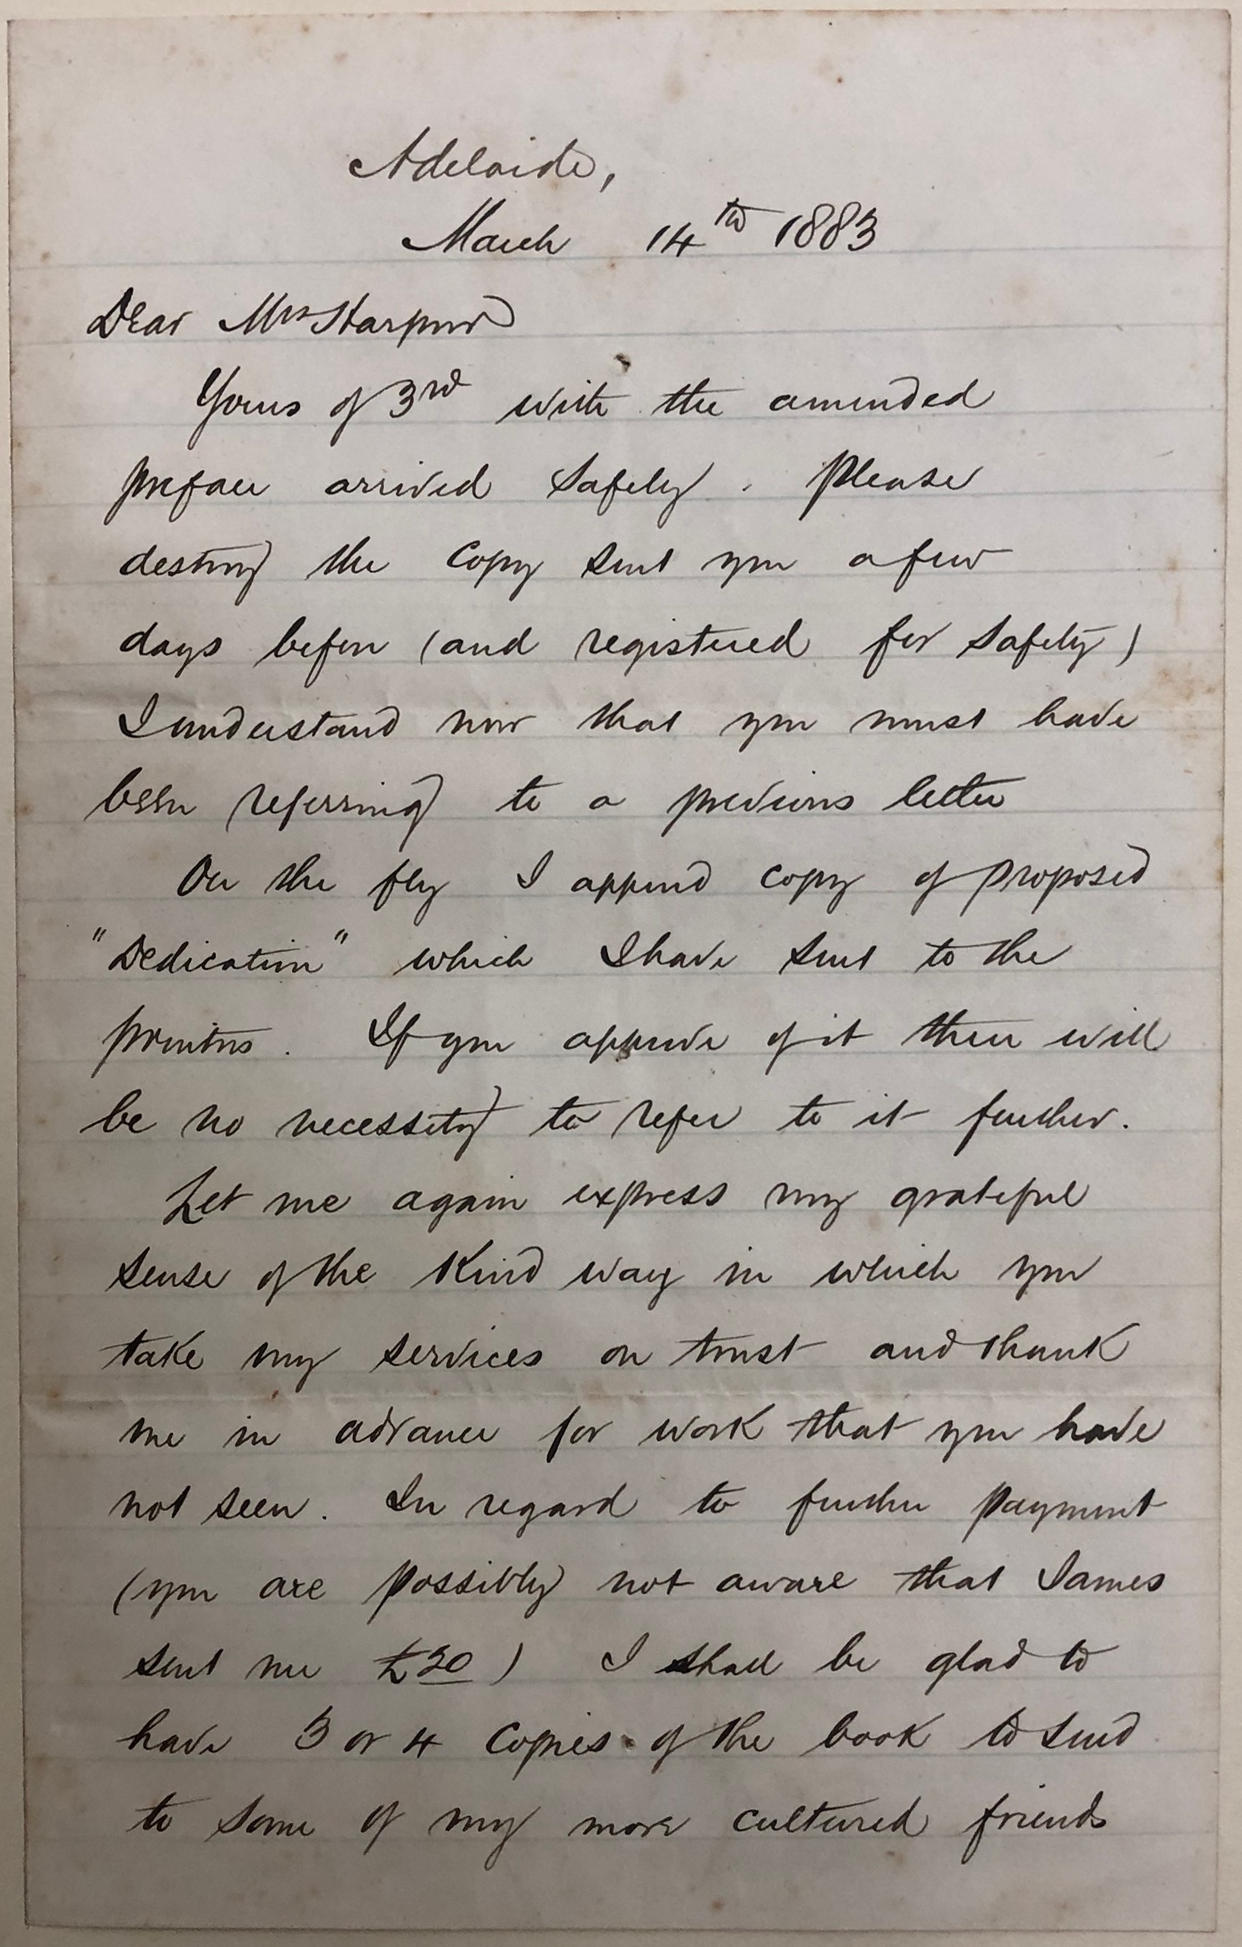 Adelaide,
March 14th 1883
Dear Mrs Harpur
Yours of 3rd with the amended
preface arrived safely. Please
destroy the copy sent you a few
days before (and registered for safety)
I understand now that you must have
been referring to a previous letter
On the fly I append copy of proposed
"Dedication" which I have sent to the
printers. If you approve of it there will
be no necessity to refer to it further.
Let me again express my grateful
sense of the kind way in which you
take my services on trust and thank
me in advance for work that you have
not seen. In regard to further payment
(you are possibly not aware that James
sent me £20) I shall be glad to
have 3 or 4 copies of the book to send
to some of my more cultured friends